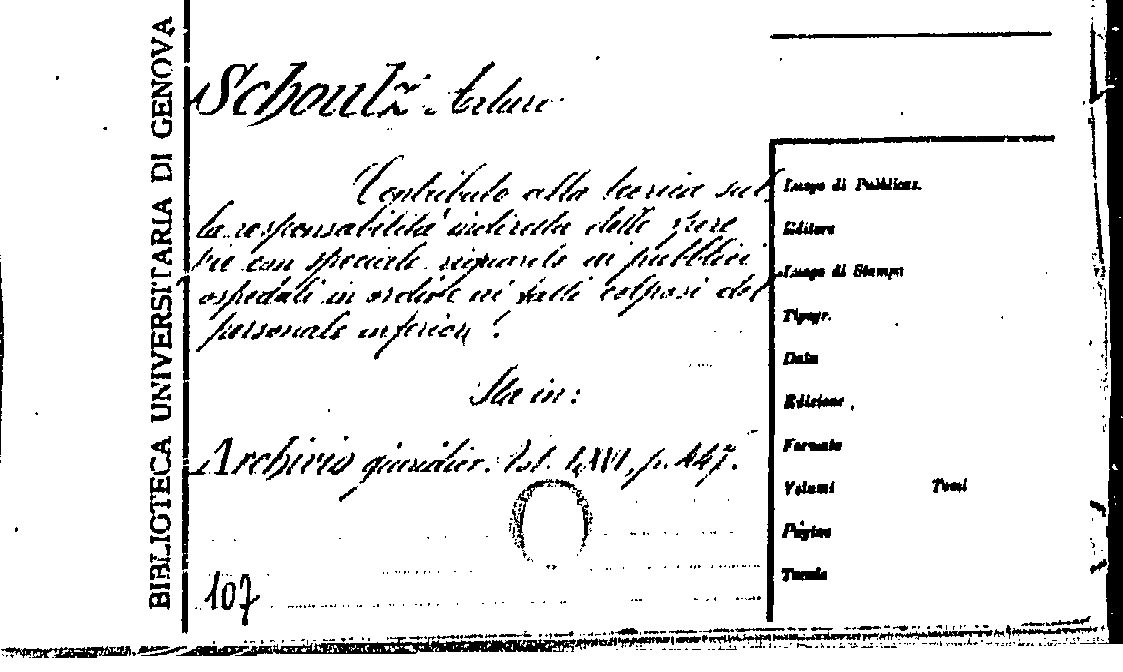 BIBLIOTECA UNIVERSITARIA DI GENOVA
Schoultz Arturo
Contributo alla teorica sul
la responsabilità indiretta delle
con speciale riguardo ai pubblici
ospedali in ordine ai fatti colposi del
personale inferiore.
Sta in:
Archivio giuridic. Vol. LXVI, p. 447.
107
Luogo di Pubblicaz.
Editore
Luogo di Stampa
Tipogr.
Data
Edizione
Formato
Volumi Tomi
Pagine
Tavole